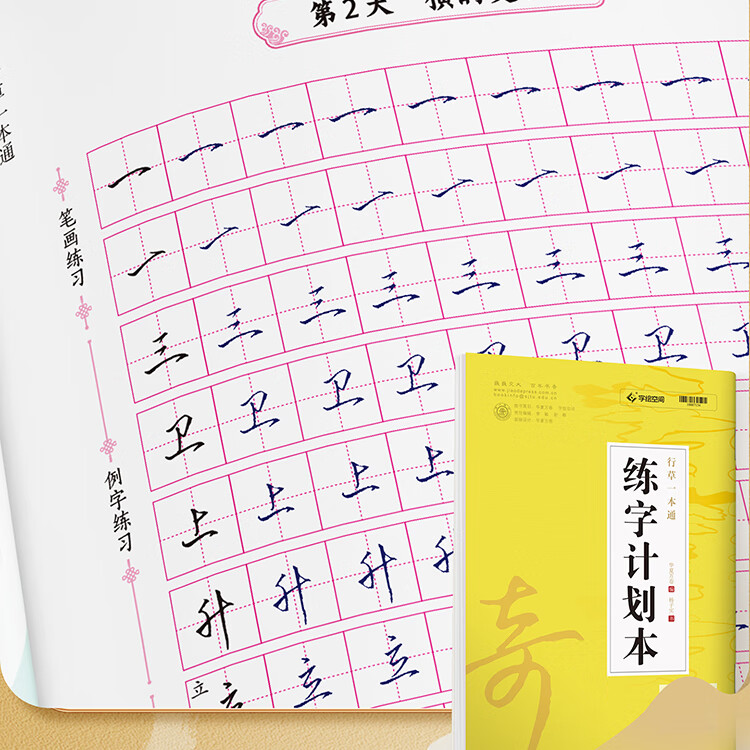 第2天
一本通
笔画练习
例字练习
一一一一一一一一
一一一一一一一一
三三三三三三三三
卫卫卫卫卫卫卫卫
上上上上
升升升升
立立立立
字绘空间
行草一本通
练字计划本
奇